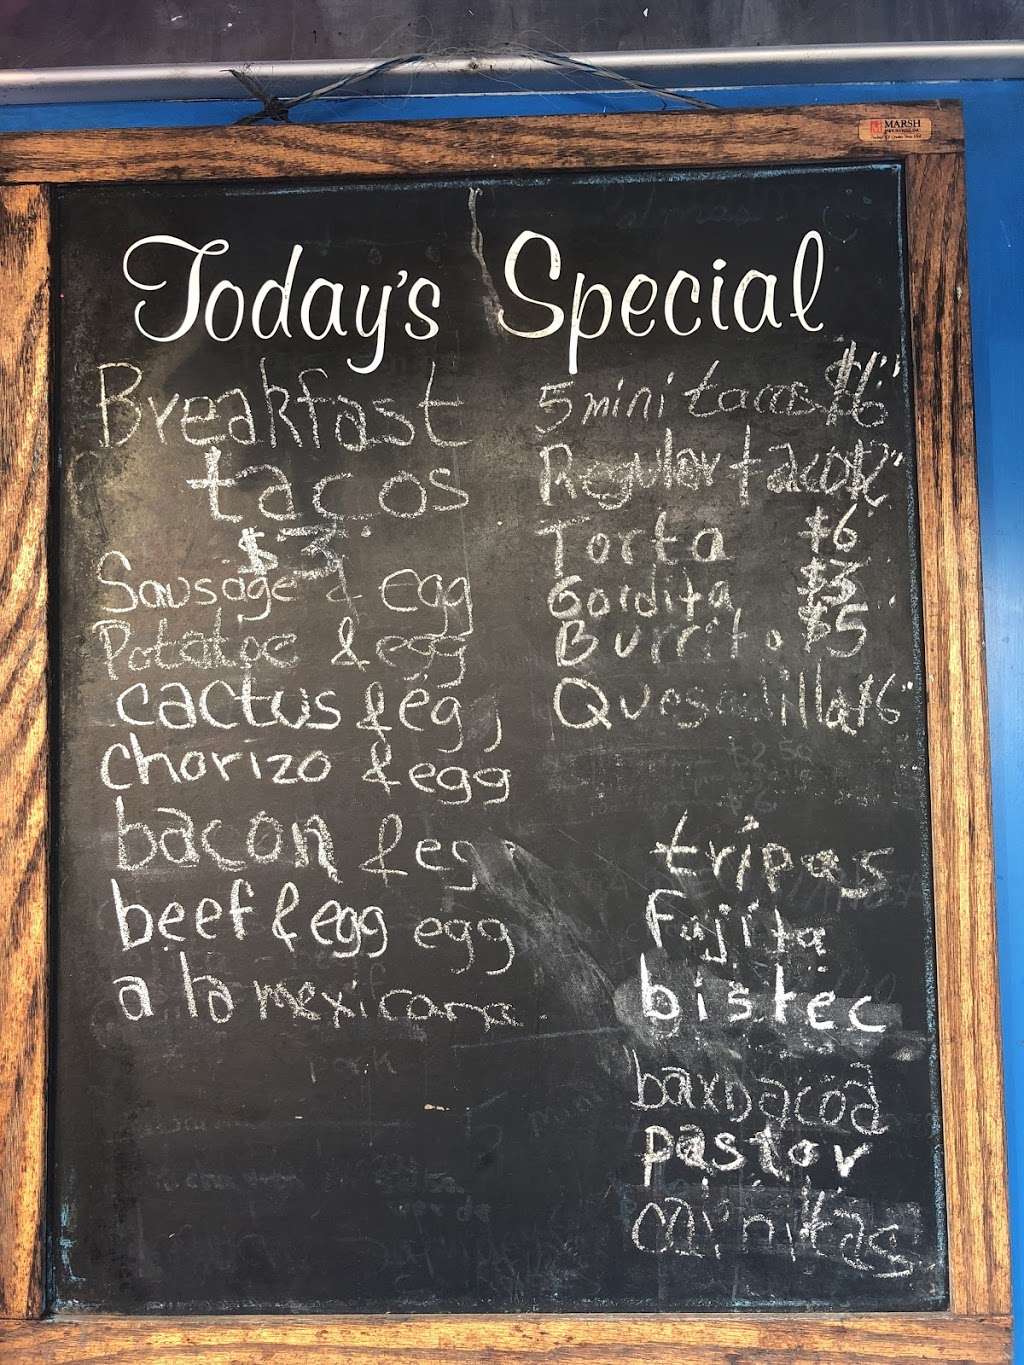 MARSH
Today's Special
Breakfast
tacos
$3
Sausage & egg
Potatoe & egg
cactus & eg
chorizo & egg
bacon & eg
beef & egg egg
a la mexicana
5 mini tacos $6
Regular tacos $2
Torta $6
Gordita $3
Burrito $5
Quesadilla $6
tripas
Fajita
bistec
barbacoa
pastor
carnitas